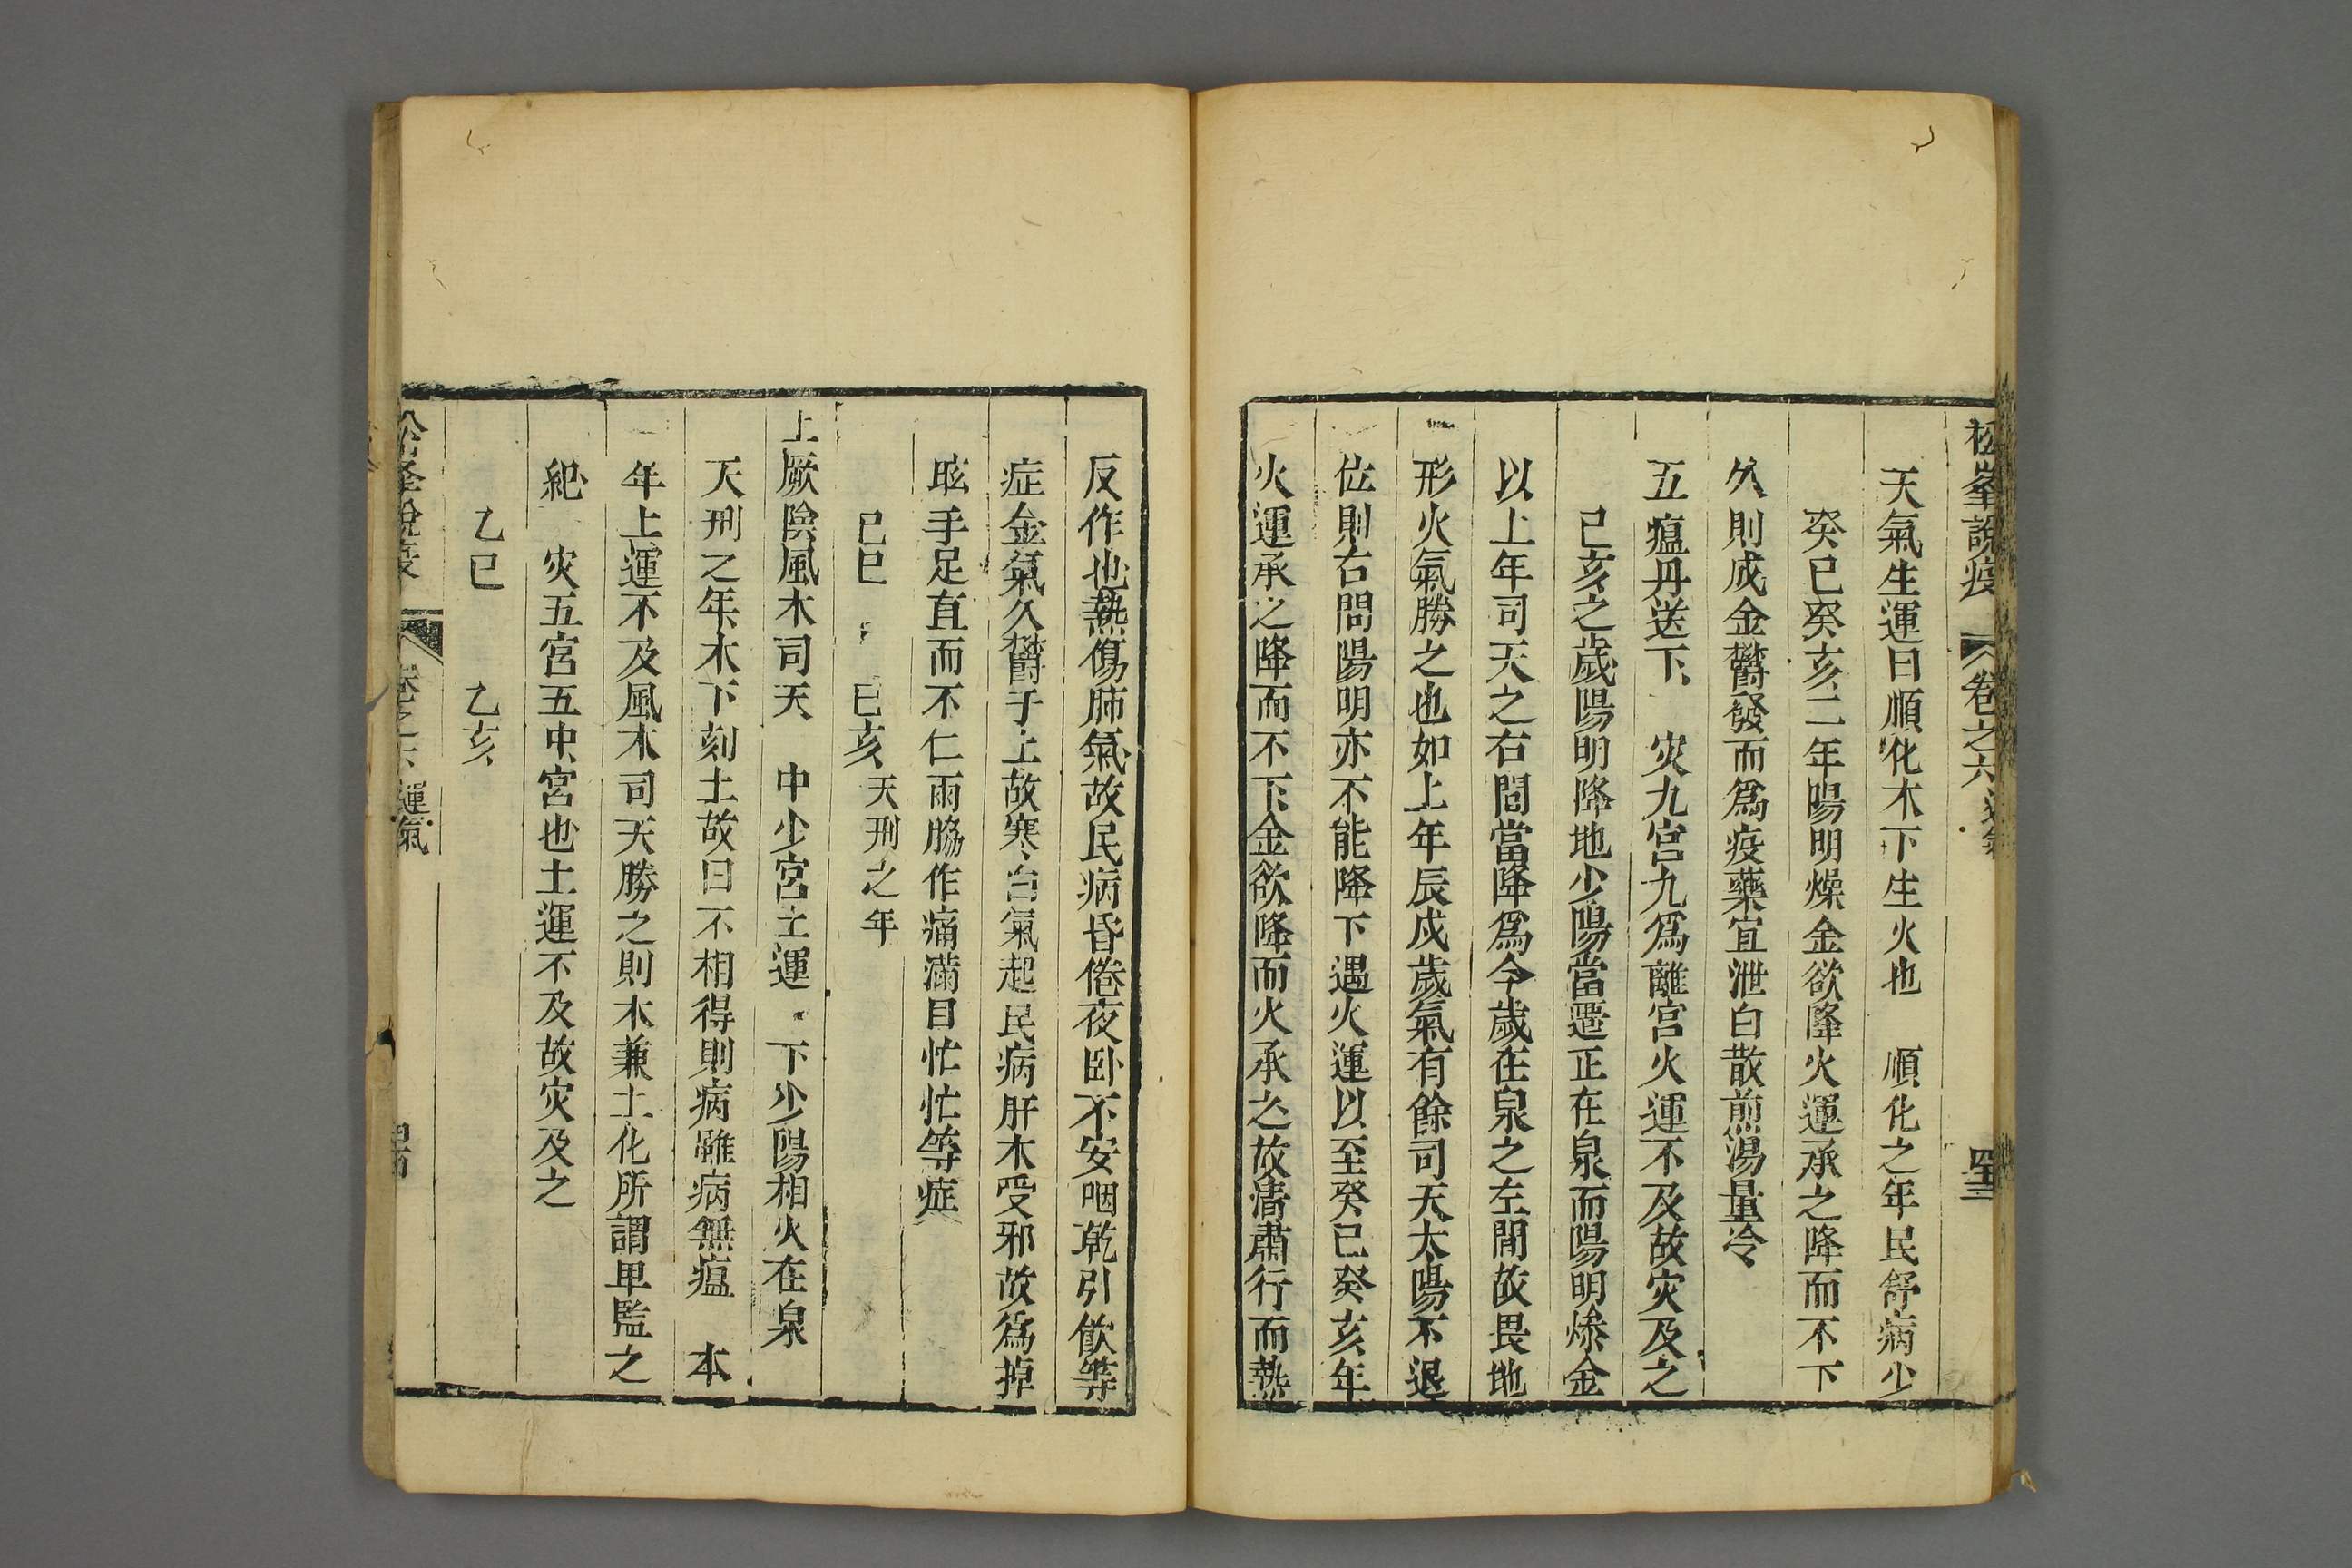 松峯說疫 卷之六 運氣 四十三
天氣生運曰順化木下生火也 順化之年民舒病少
癸巳癸亥二年陽明燥金欲降火運承之降而不下
久則成金欝發而爲疫藥宜泄白散煎湯量冷
五瘟丹送下 灾九宮九爲離宮火運不及故灾及之
己亥之歲陽明降地少陽當遷正在泉而陽明燥金
以上年司天之右間當降爲今歲在泉之左間故畏地
形火氣勝之也如上年辰戌歲氣有餘司天太陽不退
位則右間陽明亦不能降下遇火運以至癸巳癸亥年
火運承之降而不下金欲降而火承之故淸肅行而熱
反作也熱傷肺氣故民病昏倦夜卧不安咽乾引飲等
症金氣久欝于上故寒白氣起民病肝木受邪故爲掉
眩手足直而不仁兩脇作痛滿目忙忙等症
己巳 己亥 天刑之年
上厥陰風木司天 中少宮土運 下少陽相火在泉
天刑之年木下刻土故曰不相得則病雖病無瘟 本
年上運不及風木司天勝之則木兼土化所謂卑監之
紀 灾五宮五中宮也土運不及故灾及之
乙巳 乙亥
松峯說疫 卷之六 運氣